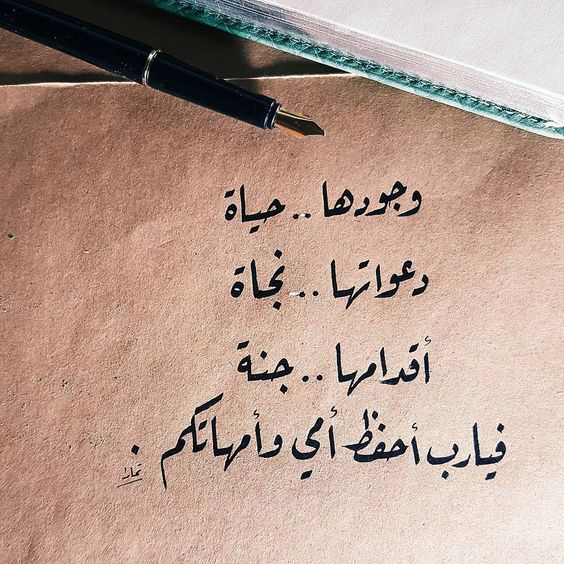 وجودها .. حياة
دعواتها .. نجاة
أقدامها .. جنة
فيارب أحفظ أمي وأمهاتكم .
تمارا